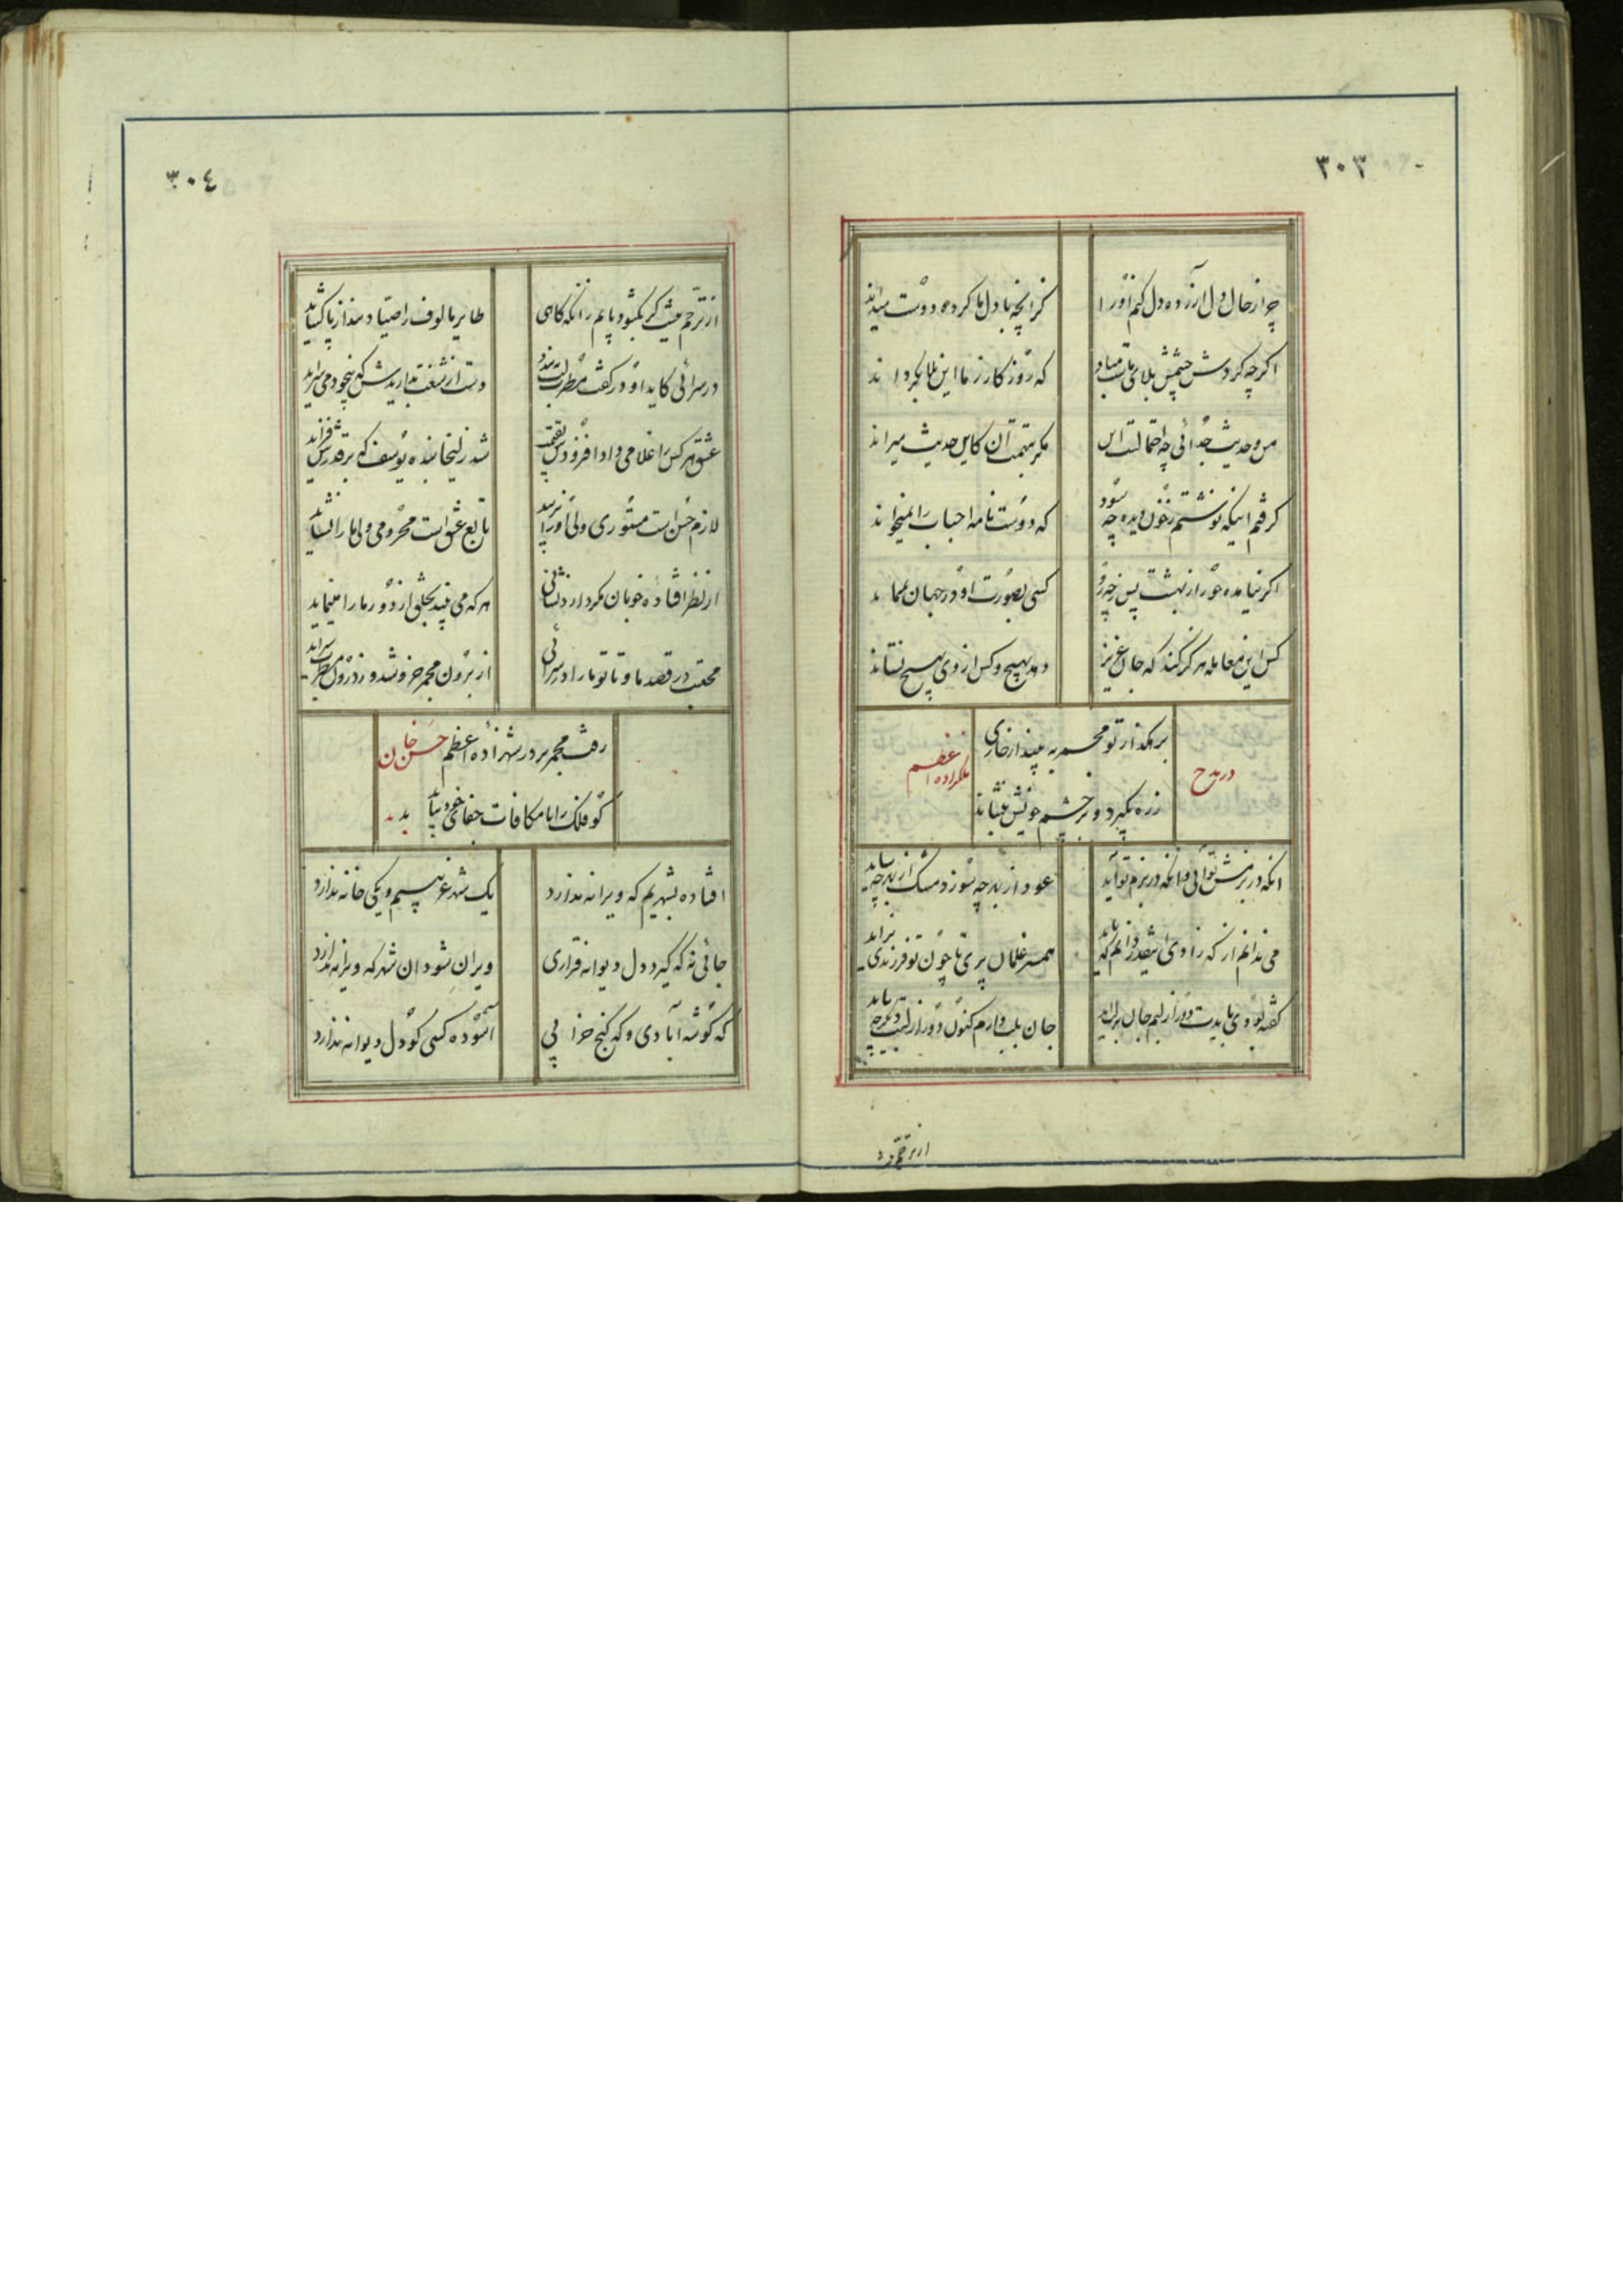 ٣٠٣
چو از حال دل آزرده دل کنم او را
کز انچه با دل ما کرده دوست میداند
اگرچه گردش چشمش بلای ماست مباد
که روزگار ز ما این بلا بگرداند
من و حدیث جدائی چه احتمالست این
مگر بتهمت آن کاین حدیث میراند
گرفتم اینکه نوشتم ز خون دیده چه سود
که دوست نامه احباب را نمیخواند
اگر نیامده حور از بهشت پس ز چه رو
کسی بصورت او در جهان نمیماند
کس این معامله هرگز نکند که جان عزیز
دهد بهیچ و کس از وی بهیچ نستاند
برهگذار تو مجمر به بیند ار خاری
ز ره بگیرد و بر چشم خویش بنشاند
در مدح
ملکزاده اعظم
انکه در بزمش تو آئی وانکه در بزم تو آید
عود از بهر چه سوزد مشک از بهر چه ساید
می ندانم از که زادی اینقدر دانم که باید
همسر غلمان پری تا چون تو فرزندی بزاید
گفته بودی بایدت دور از لبم جان بر لب آید
جان بلب دارم کنون دور از لبت دیگر چه باید
از ترحم
٣٠٤
از ترحم نیست گر نگشود پایم زانکه گاهی
طایر مالوف را صیاد بند از پا گشاید
در سرائی کاید او در گفت مطرب لب ببندد
دست از شنعت بداریدش که بیخود می سراید
عشق هر کس را غلامی داد افزودش بقیمت
شد زلیخا بنده یوسف که بر قدرش فزاید
لازم حسن است مستوری ولی او را نزیبد
تابع عشق است محرومی ولی ما را نشاید
از نظر افتاده خوبان مگر دارد نشانی
هر که می بیند بخلق از دور ما را مینماید
محتسب در قصد ما و تا تو ما را در سرائی
از برون مجمر خروشد وز درون مطرب سراید
رفت مجمر بر در شهزاده اعظم حسن خان
گو فلک را تا مکافات جفای خود بیابد
افتاده بشهریم که ویرانه ندارد
یک شهر غریبیم و یکی خانه ندارد
جائی نه که گیرد دل دیوانه قراری
ویران شود ان شهر که ویرانه ندارد
که گوشه آبادی و که کنج خرابی
آسوده کسی کو دل دیوانه ندارد